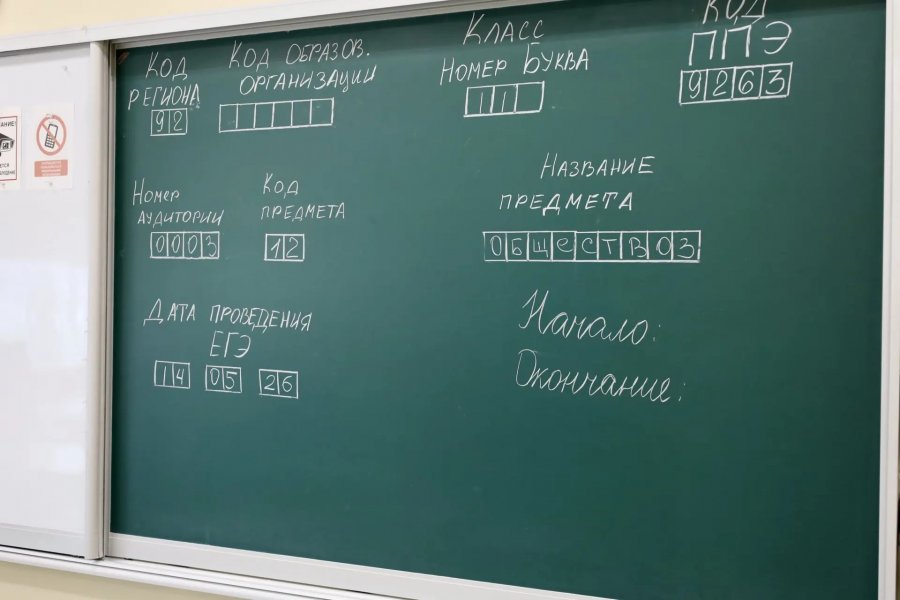 КОД
РЕГИОНА
92
КОД ОБРАЗОВ.
ОРГАНИЗАЦИИ
КЛАСС
НОМЕР БУКВА
11
КОД
ППЭ
9263
НОМЕР
АУДИТОРИИ
0003
КОД
ПРЕДМЕТА
12
НАЗВАНИЕ
ПРЕДМЕТА
ОБЩЕСТВОЗ
ДАТА ПРОВЕДЕНИЯ
ЕГЭ
14 05 26
Начало:
Окончание: